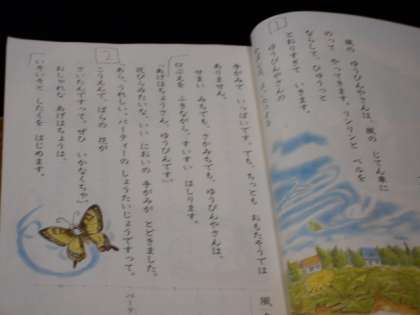 1
風の ゆうびんやさんは、風の じてん車に
のって やってきます。リンリンと ベルを
ならして、ひゅうっと
とおりすぎて いきます。
ゆうびんやさんの
手がみで いっぱいです。でも、ちっとも おもたそうでは
ありません。
せまい みちでも、さかみちでも、ゆうびんやさんは、
口ぶえを ふきながら、すいすい はしります。
2
「あげはちょうさん、ゆうびんです。」
花びらみたいな、いい においの 手がみが とどきました。
「あら、うれしい。パーティーの しょうたいじょうですって。
こうえんで、ばらの 花が
さいたんですって。ぜひ いかなくちゃ。」
おしゃれな あげはちょうは、
いそいそと したくを はじめます。
風
パーテ